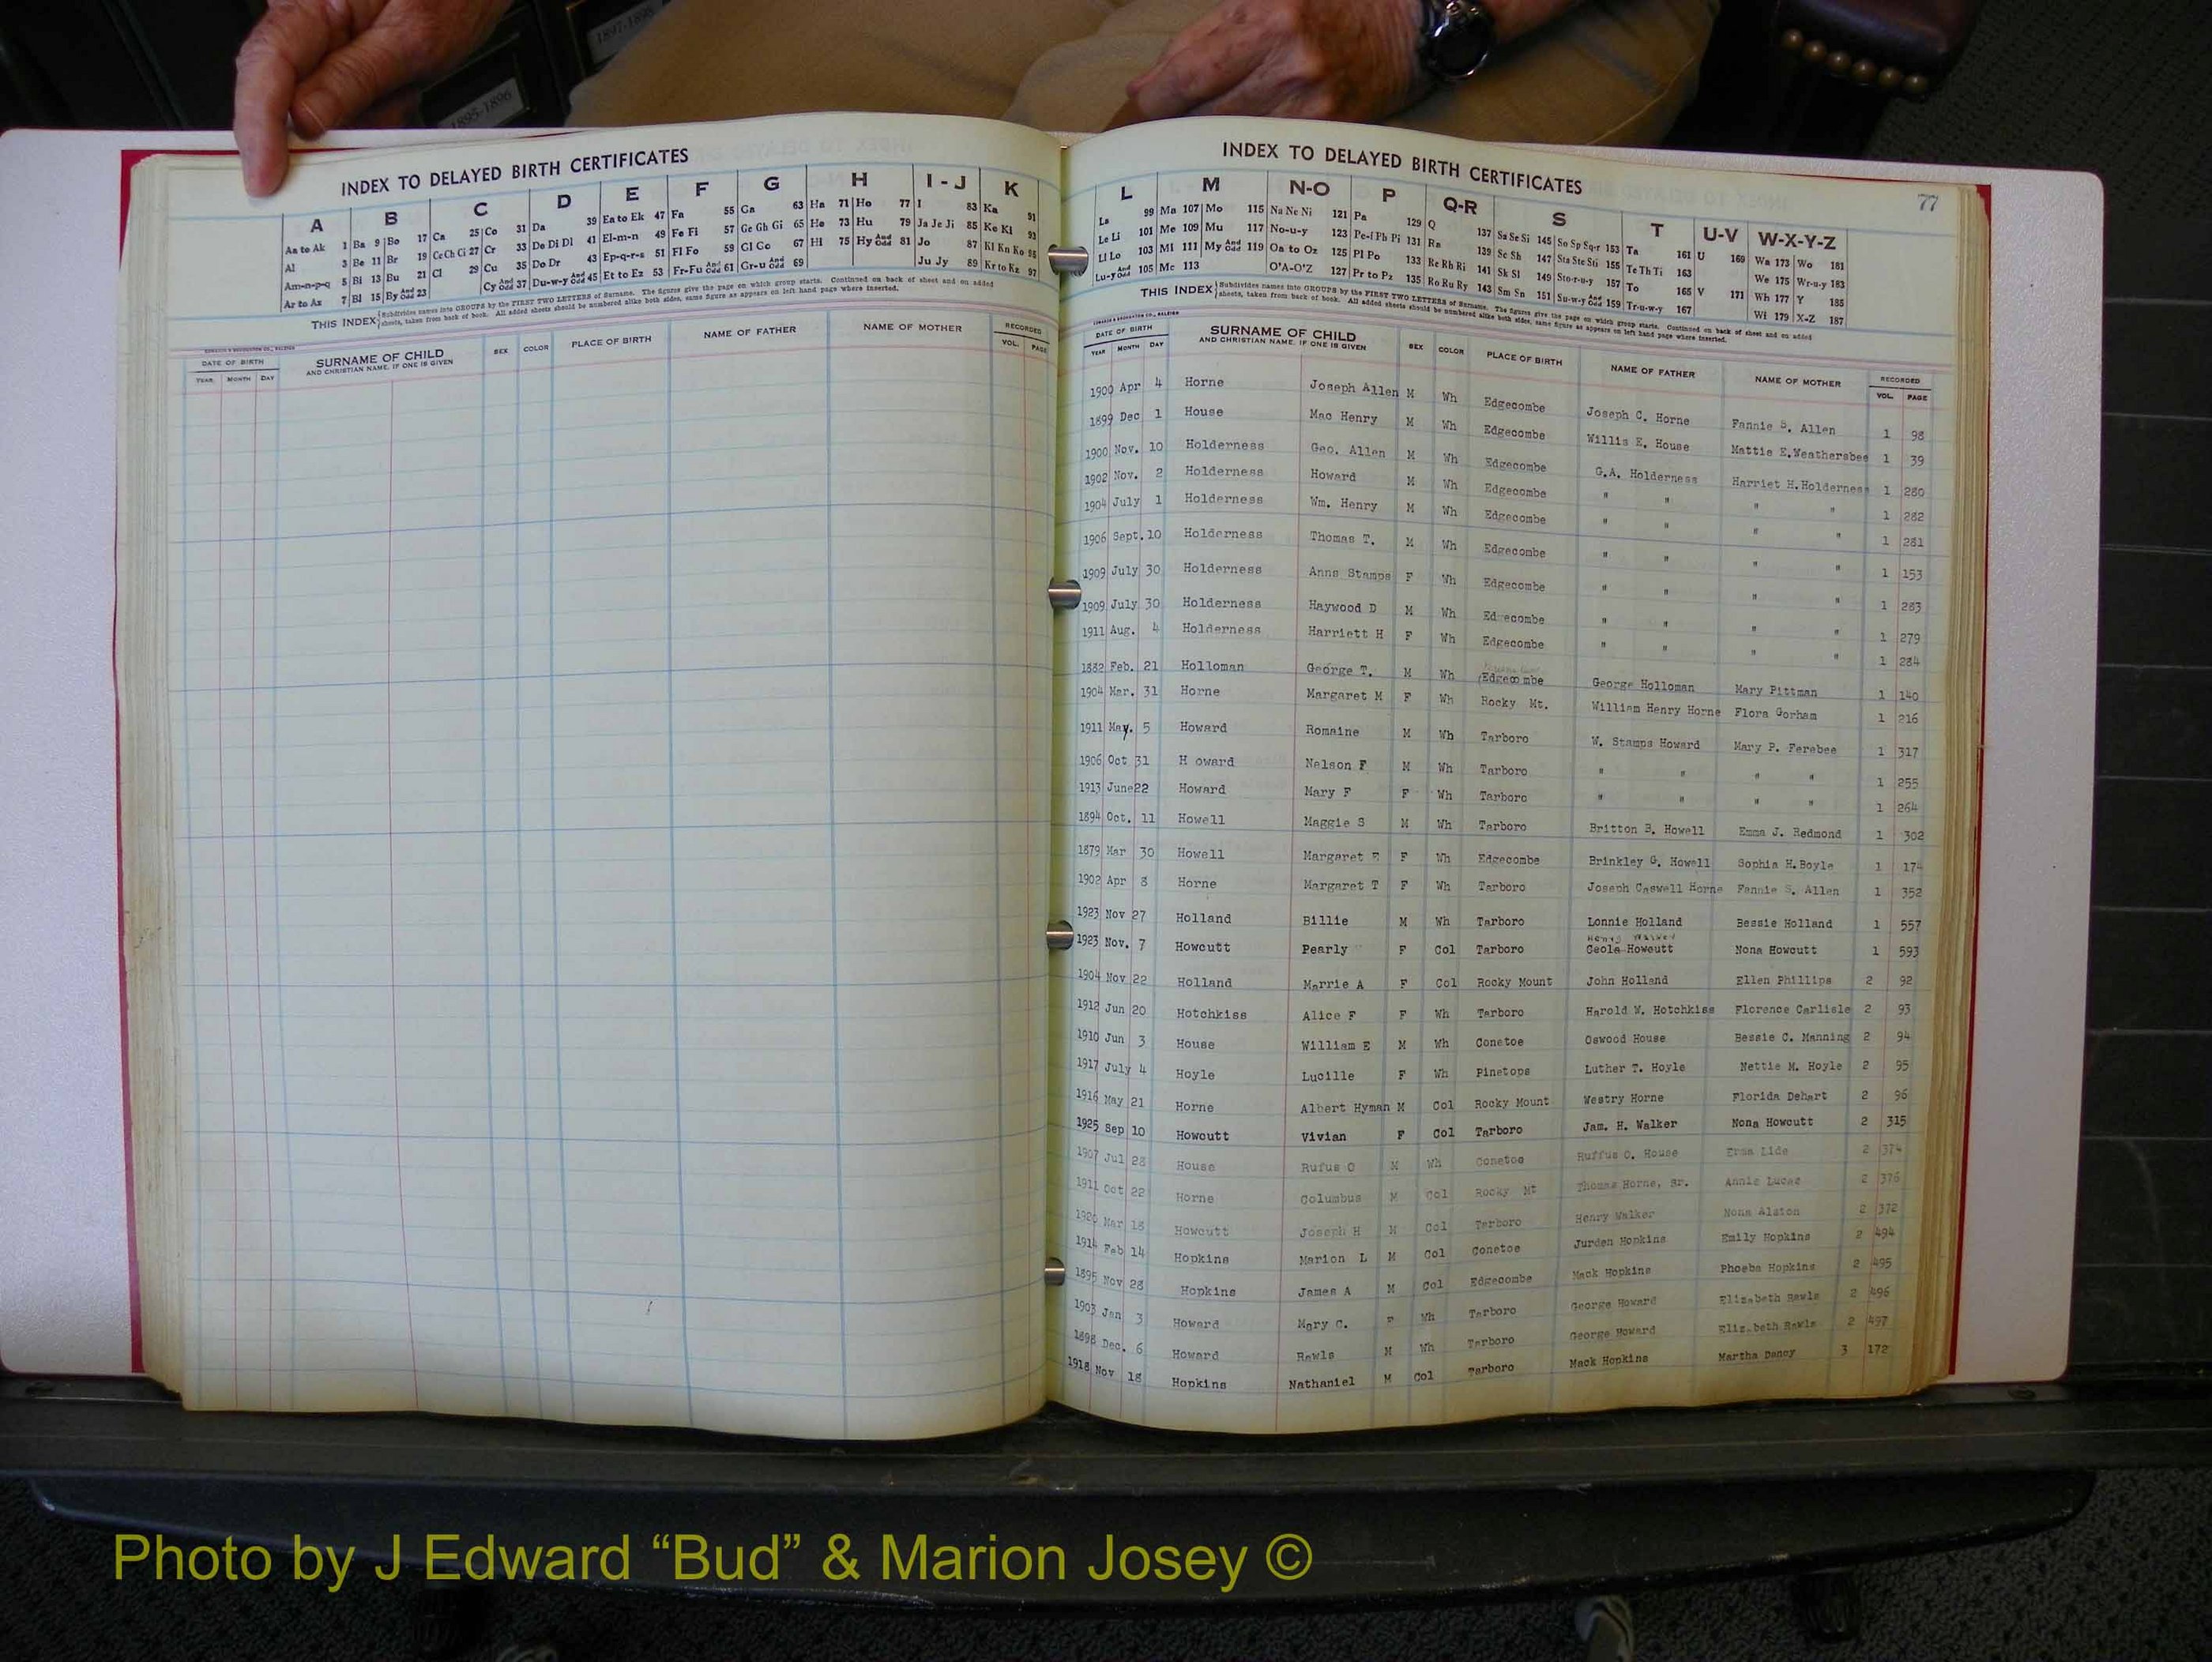 1897-1898
1895-1896
INDEX TO DELAYED BIRTH CERTIFICATES
A B C D E F G H I - J K
Aa to Ak 1 Ba 9 Bo 17 Ca 25 Co 31 Da 39 Ea to Ek 47 Fa 55 Ga 63 Ha 71 Ho 77 I 83 Ka 91
Al 3 Be 11 Br 19 Ce Ch Ci 27 Cr 33 De Di Dl 41 El-m-n 49 Fe Fi 57 Ge Gh Gi 65 He 73 Hu 79 Ja Je Ji 85 Ke Ki 93
Am-n-p-q 5 Bi 13 Bu 21 Cl 29 Cu 35 Do Dr 43 Ep-q-r-s 51 Fl Fo 59 Gl Go 67 Hi 75 Hy And Odd 81 Jo 87 Kl Kn Ko 95
Ar to Az 7 Bl 15 By And Odd 23 Cy And Odd 37 Du-w-y And Odd 45 Et to Ez 53 Fr-Fu And Odd 61 Gr-u And Odd 69 Ju Jy 89 Kr to Kz 97
THIS INDEX Subdivides names into GROUPS by the FIRST TWO LETTERS of Surname. The figures give the page on which group starts. Continued on back of sheet and on added
sheets, taken from back of book. All added sheets should be numbered alike both sides, same figure as appears on left hand page where inserted.
DATE OF BIRTH SURNAME OF CHILD SEX COLOR PLACE OF BIRTH NAME OF FATHER NAME OF MOTHER RECORDED
YEAR MONTH DAY AND CHRISTIAN NAME, IF ONE IS GIVEN VOL. PAGE
INDEX TO DELAYED BIRTH CERTIFICATES 77
L M N-O P Q-R S T U-V W-X-Y-Z
La 99 Ma 107 Mo 115 Na Ne Ni 121 Pa 129 Q 137 Sa Se Si 145 So Sp Sq-r 153 Ta 161 U 169 Wa 173 Wo 181
Le Li 101 Me 109 Mu 117 No-u-y 123 Pe-f Ph Pi 131 Ra 139 Sc Sh 147 Sta Ste Sti 155 Te Th Ti 163 We 175 Wr-u-y 183
Ll Lo 103 Mi 111 My And Odd 119 Oa to Oz 125 Pl Po 133 Re Rh Ri 141 Sk Sl 149 Sto-r-u-y 157 To 165 V 171 Wh 177 Y 185
Lu-y And Odd 105 Mc 113 O'A-O'Z 127 Pr to Pz 135 Ro Ru Ry 143 Sm Sn 151 Su-w-y And Odd 159 Tr-u-w-y 167 Wi 179 X-Z 187
THIS INDEX Subdivides names into GROUPS by the FIRST TWO LETTERS of Surname. The figures give the page on which group starts. Continued on back of sheet and on added
sheets, taken from back of book. All added sheets should be numbered alike both sides, same figure as appears on left hand page where inserted.
DATE OF BIRTH SURNAME OF CHILD SEX COLOR PLACE OF BIRTH NAME OF FATHER NAME OF MOTHER RECORDED
YEAR MONTH DAY AND CHRISTIAN NAME, IF ONE IS GIVEN VOL. PAGE
1900 Apr 4 Horne Joseph Allen M Wh Edgecombe Joseph C. Horne Fannie S. Allen 1 98
1899 Dec 1 House Mac Henry M Wh Edgecombe Willis E. House Mattie E.Weathersbee 1 39
1900 Nov. 10 Holderness Geo. Allen M Wh Edgecombe G.A. Holderness Harriet H.Holderness 1 280
1902 Nov. 2 Holderness Howard M Wh Edgecombe " " " " 1 282
1904 July 1 Holderness Wm. Henry M Wh Edgecombe " " " " 1 281
1906 Sept. 10 Holderness Thomas T. M Wh Edgecombe " " " " 1 153
1909 July 30 Holderness Anna Stamps F Wh Edgecombe " " " " 1 283
1909 July 30 Holderness Haywood D M Wh Edgecombe " " " " 1 279
1911 Aug. 4 Holderness Harriett H F Wh Edgecombe " " " " 1 284
1882 Feb. 21 Holloman George T. M Wh Edgecombe George Holloman Mary Pittman 1 140
1904 Mar. 31 Horne Margaret M F Wh Rocky Mt. William Henry Horne Flora Gorham 1 216
1911 May. 5 Howard Romaine M Wh Tarboro W. Stamps Howard Mary P. Ferebee 1 317
1906 Oct 31 H oward Nelson F M Wh Tarboro " " " " 1 255
1913 June 22 Howard Mary F F Wh Tarboro " " " " 1 264
1894 Oct. 11 Howell Maggie S M Wh Tarboro Britton B. Howell Emma J. Redmond 1 302
1879 Mar 30 Howell Margaret E F Wh Edgecombe Brinkley G. Howell Sophia H.Boyle 1 174
1902 Apr 8 Horne Margaret T F Wh Tarboro Joseph Caswell Horne Fannie S. Allen 1 352
1923 Nov 27 Holland Billie M Wh Tarboro Lonnie Holland Bessie Holland 1 557
Henry Walker
1923 Nov. 7 Howcutt Pearly F Col Tarboro Ceola Howcutt Nona Howcutt 1 593
1904 Nov 22 Holland Marrie A F Col Rocky Mount John Holland Ellen Phillips 2 92
1912 Jun 20 Hotchkiss Alice F F Wh Tarboro Harold W. Hotchkiss Florence Carlisle 2 93
1910 Jun 3 House William E M Wh Conetoe Oswood House Bessie C. Manning 2 94
1917 July 4 Hoyle Lucille F Wh Pinetops Luther T. Hoyle Nettie M. Hoyle 2 95
1916 May 21 Horne Albert Hyman M Col Rocky Mount Westry Horne Florida Dehart 2 96
1925 Sep 10 Howcutt Vivian F Col Tarboro Jam. H. Walker Nona Howcutt 2 315
1907 Jul 28 House Rufus O M Wh Conetoe Ruffus O. House Erma Lide 2 374
1911 Oct 22 Horne Columbus M Col Rocky Mt Thomas Horne, Sr. Annie Lucas 2 376
Mar 18 Howcutt Joseph H M Col Tarboro Henry Walker Nona Alston 2 372
1914 Feb 14 Hopkins Marion L M Col Conetoe Jurden Hopkins Emily Hopkins 2 494
1895 Nov 28 Hopkins James A M Col Edgecombe Mack Hopkins Phoebe Hopkins 2 495
1903 Jan 3 Howard Mary C. F Wh Tarboro George Howard Elizabeth Rawls 2 496
1898 Dec. 6 Howard Rawls M Wh Tarboro George Howard Elizabeth Rawls 2 497
1918 Nov 18 Hopkins Nathaniel M Col Tarboro Mack Hopkins Martha Dancy 3 172
Photo by J Edward “Bud” & Marion Josey ©